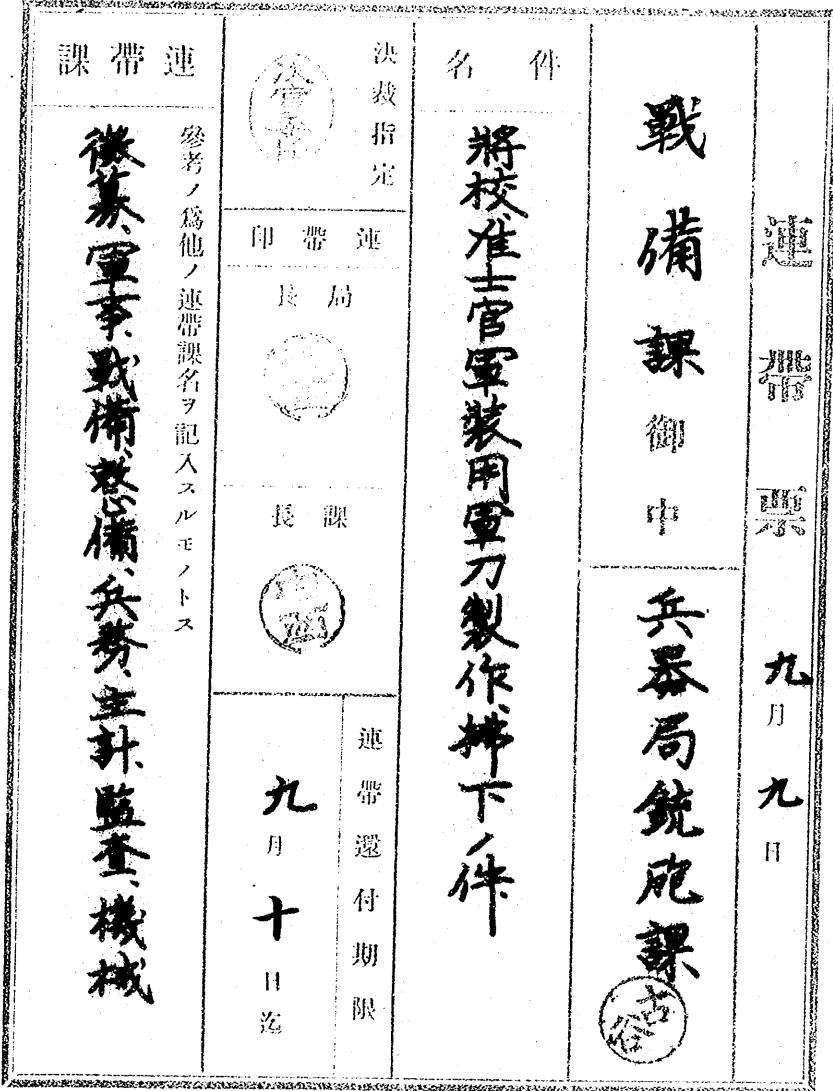 連帶票
九月九日
戰備課御中
兵器局銃砲課
古谷
件名
將校准士官軍裝用軍刀製作、拂下ノ件
決裁指定
連帶印
局長
課長
連帶還付期限
九月十日迄
連帶課
參考ノ爲他ノ連帶課名ヲ記入スルモノトス
徵募、軍事、戰備、整備、兵務、主計、監査、機械